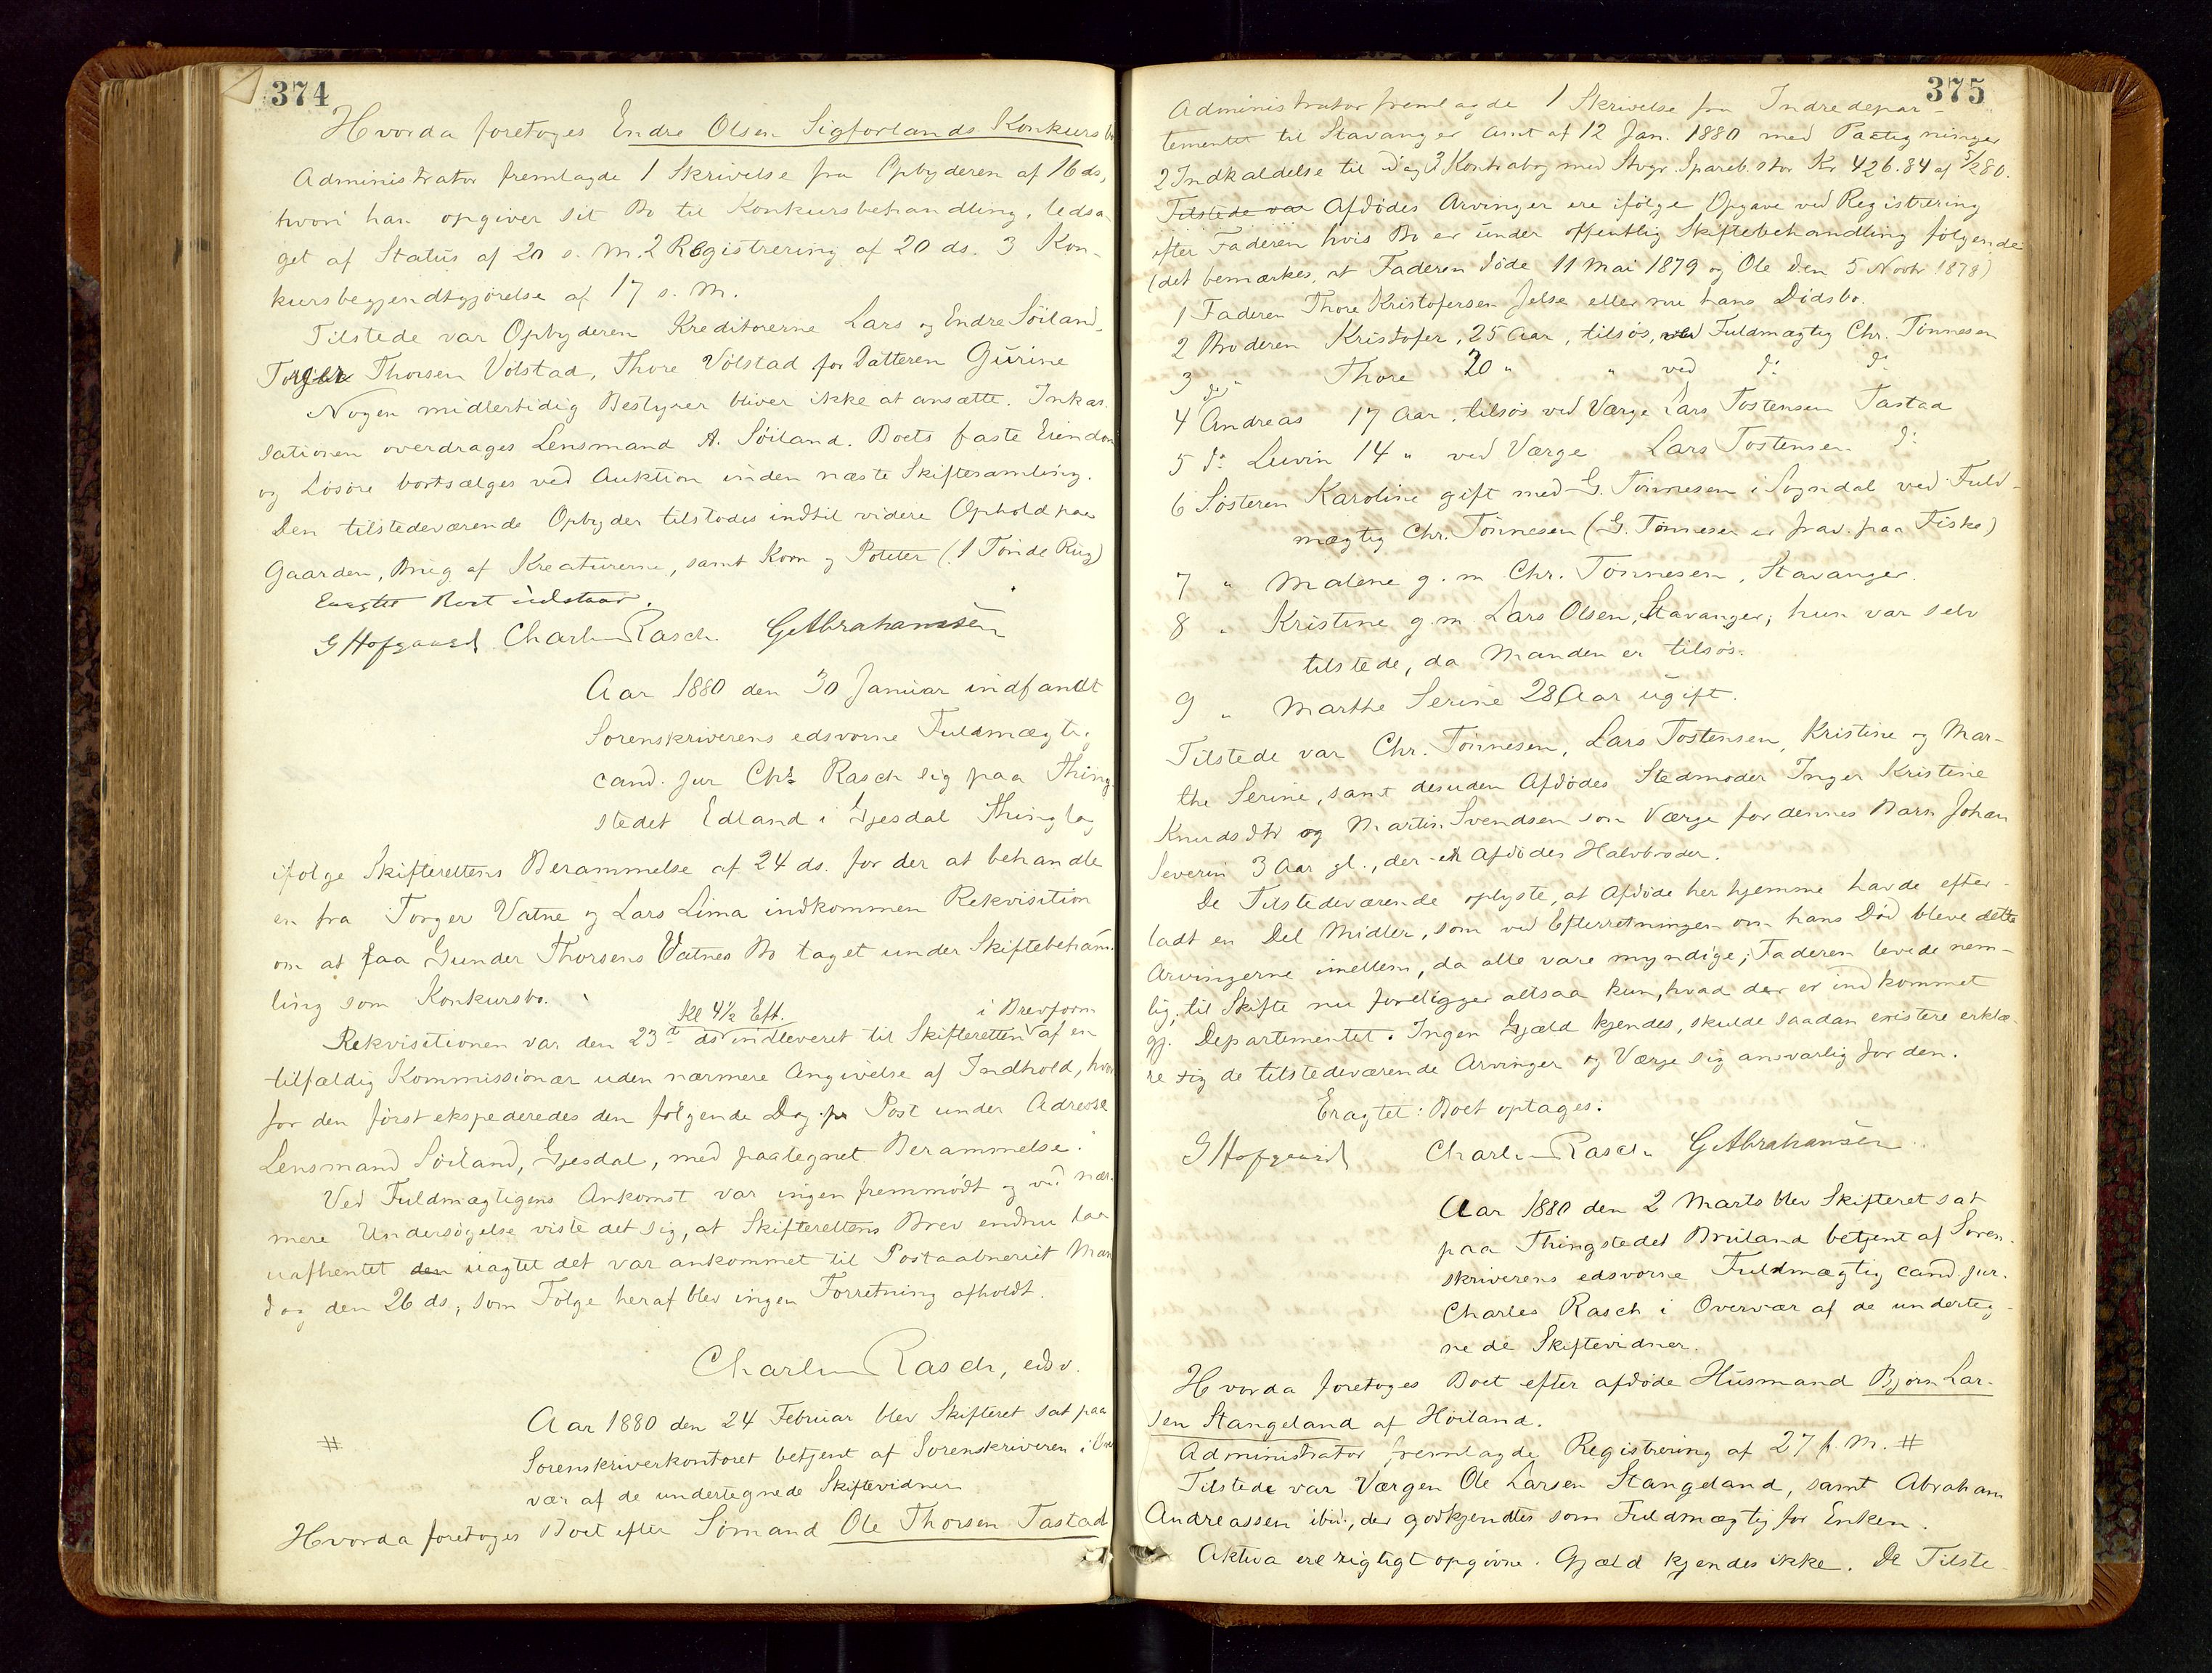 374
Hvorda foretoges Endre Olsen Sigforlands Konkursbo
Administrator fremlagde 1 Skrivelse fra Opbyderen af 16 ds,
hvori han opgiver sit Bo til Konkursbehandling, ledsa-
get af Status af 20 s. M. 2 Registrering af 20 ds. 3 Kon-
kursbegjendtgjørelse af 17 s. M.
Tilstede var Opbyderen Kreditorerne Lars og Endre Söiland,
Torger Thorsen Völstad, Thore Völstad for Datteren Gurine
Nogen midlertidig Bestyrer bliver ikke at ansætte. Inkas-
sationen overdrages Lensmand A. Söiland. Boets faste Eiendom
og Lösöre bortsælges ved Auktion inden næste Skiftesamling.
Den tilstedeværende Opbyder tilstodes indtil videre Ophold paa
Gaarden, Brug af Kreaturerne, samt Korn og Poteter (1 Tönde Rug)
Eragtet Boet udstaar.
G Hofgaard. Charles Rasch. G Abrahamsen
Aar 1880 den 30 Januar indfandt
Sorenskriverens edsvorne Fuldmægtig
cand. jur Chs Rasch sig paa Thing-
stedet Edland i Gjesdal Thinglag
ifölge Skifterettens Berammelse af 24 ds. for der at behandle
en fra Torger Vatne og Lars Lima indkommen Rekvisition
om at faa Gunder Thorsens Vatnes Bo taget under Skiftebehand-
ling som Konkursbo.
Kl 4½ Eft. i Brevform
Rekvisitionen var den 23de ds indleveret til Skifteretten af en
tilfældig Kommissionær uden nærmere Angivelse af Indhold, hvor-
for den först ekspederedes den fölgende Dag pr Post under Adresse
Lensmand Söiland, Gjesdal, med paategnet Berammelse.
Ved Fuldmægtigens Ankomst var ingen fremmödt og ved nær-
mere Undersögelse viste det sig, at Skifterettens Brev endnu laa
uafhentet den uagtet det var ankommet til Postaabneriet Man-
dag den 26 ds, som Fölge heraf blev ingen Forretning afholdt.
Charles Rasch, edsv.
Aar 1880 den 24 Februar blev Skifteret sat paa
# Sorenskriverkontoret betjent af Sorenskriveren i Over-
vær af de undertegnede Skiftevidner
Hvorda foretoges Boet efter Sömand Ole Thorsen Tastad
375
Administrator fremlagde 1 Skrivelse fra Indredepar-
tementet til Stavanger Amt af 12 Jan. 1880 med Paategninger
2 Indkaldelse til idag 3 Kontrabog med Stvgr. Spareb. stor Kr 426.84 af 5/2 80.
Tilstede var Afdödes Arvinger ere ifölge Opgave ved Registrering
efter Faderen hvis Bo er under offentlig Skiftebehandling fölgende
(det bemærkes, at Faderen döde 11 Mai 1879 og Ole den 5 Novbr 1878)
1 Faderen Thore Kristofersen Jelse eller nu hans Dödsbo.
2 Broderen Kristofer, 25 Aar, tilsös, ved Fuldmægtig Chr. Tönnesen
3 do " Thore 20 " " ved do do
4 Andreas 17 Aar, tilsös ved Værge Lars Tostensen Tastad
5 do Luvin 14 " ved Værge Lars Tostensen do
6 Sösteren Karoline gift med G. Tönnesen i Sogndal ved Fuld-
mægtig Chr. Tönnesen (G. Tönnesen er frav. paa Fiske)
7 " Malene g. m Chr. Tönnesen, Stavanger.
8 " Kristine g. m. Lars Olsen, Stavanger; hun var selv
tilstede, da Manden er tilsös.
9 " Marthe Serine 28 Aar ugift.
Tilstede var Chr. Tönnesen, Lars Tostensen, Kristine og Mar-
the Serine, samt desuden Afdödes Stedmoder Inger Kristine
Knudsdtr og Martin Svendsen som Værge for dennes Barn Johan
Severin 3 Aar gl., der er Afdödes Halvbroder.
De Tilstedeværende oplyste, at Afdöde her hjemme havde efter-
ladt en Del Midler, som ved Efterretningen om hans Död bleve delte
Arvingerne imellem, da alle vare myndige; Faderen levede nem-
lig, til Skifte nu foreligger altsaa kun, hvad der er indkommet
gj. Departementet. Ingen Gjæld kjendes, skulde saadan existere erklæ-
re sig de tilstedeværende Arvinger og Værge sig ansvarlig for den.
Eragtet: Boet optages.
G Hofgaard Charles Rasch G Abrahamsen
Aar 1880 den 2 Marts blev Skifteret sat
paa Thingstedet Bruland betjent af Soren-
skriverens edsvorne Fuldmægtig cand. jur.
Charles Rasch i Overvær af de underteg-
nede Skiftevidner.
Hvorda foretoges Boet efter afdöde Husmand Björn Lar-
sen Stangeland af Höiland.
Administrator fremlagde Registrering af 27 f. M. #
Tilstede var Værgen Ole Larsen Stangeland, samt Abraham
Andreassen ibid., der godkjendtes som Fuldmægtig for Enken.
Aktiva ere rigtigt opgivne. Gjæld kjendes ikke. De Tilste-